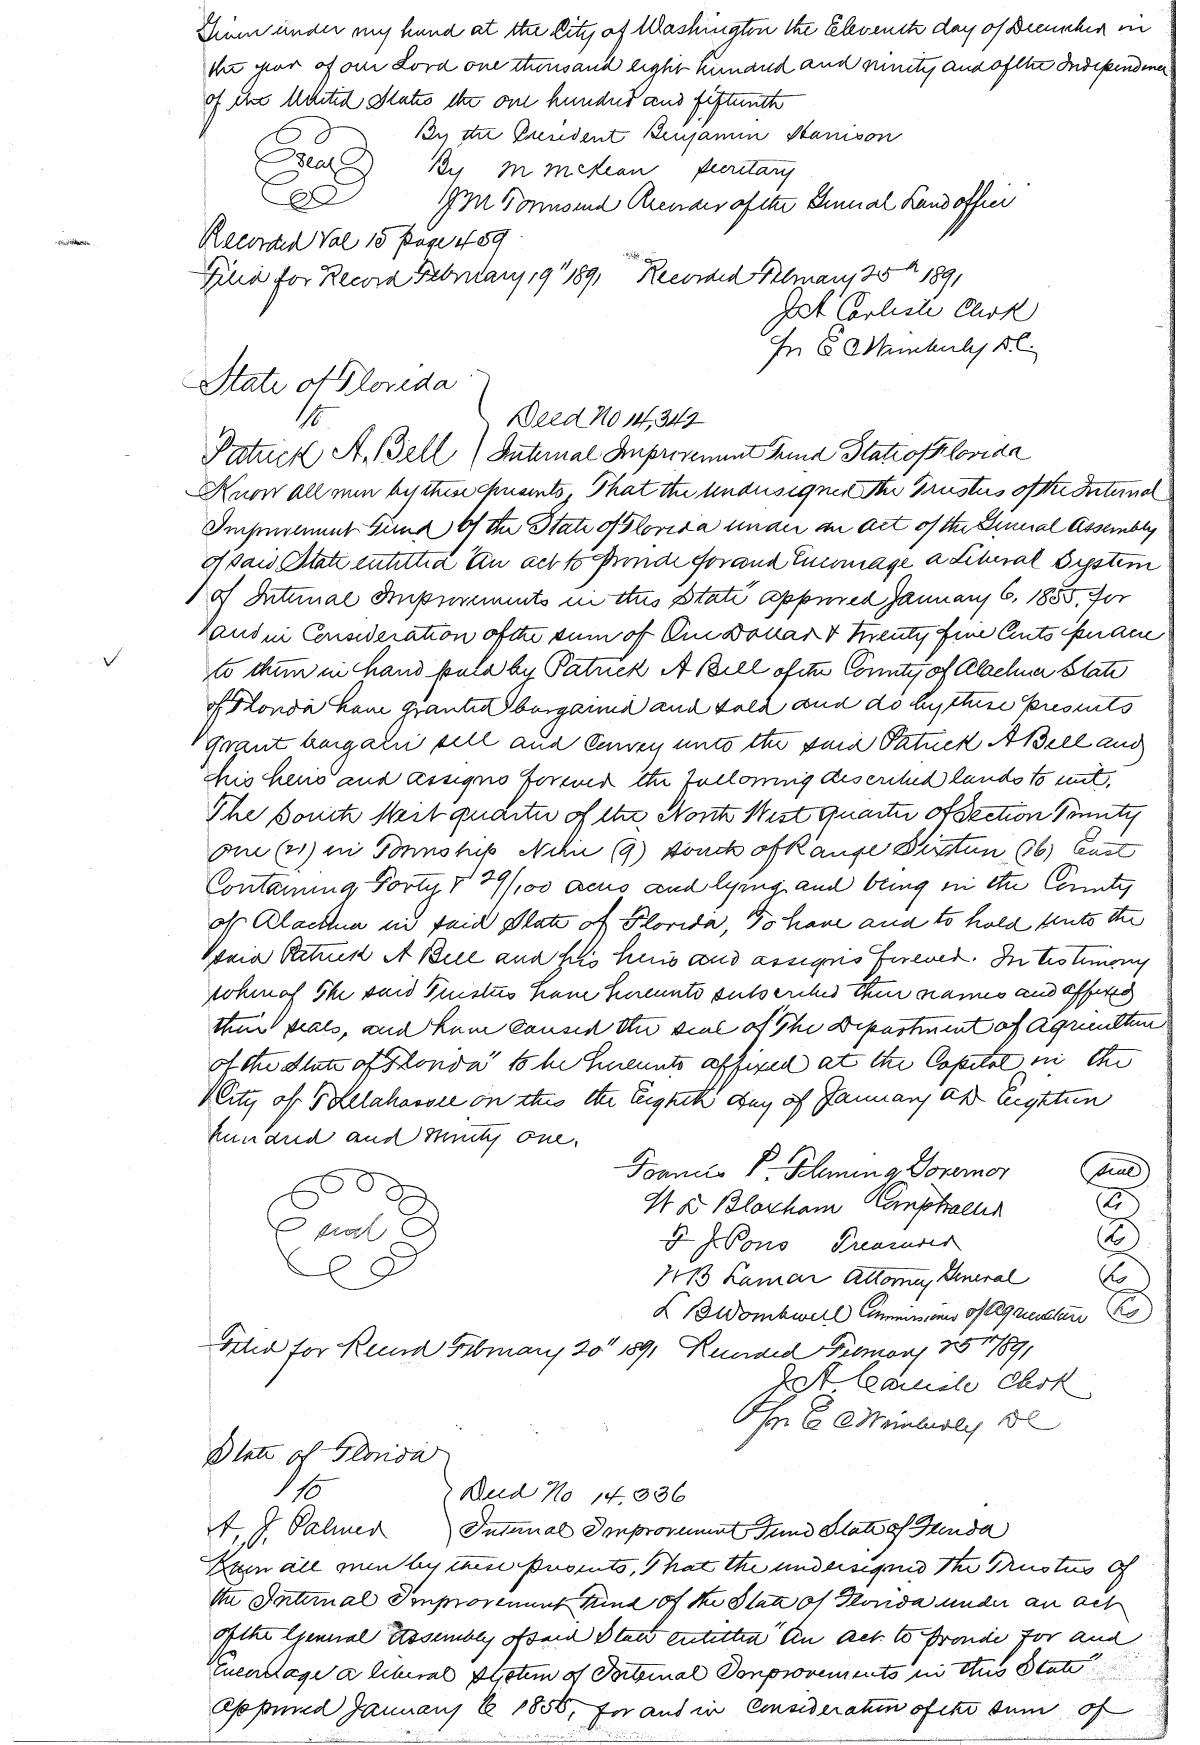 Given under my hand at the City of Washington the Eleventh day of December in
the year of our Lord one thousand eight hundred and ninity and of the Independence
of the United States the one hundred and fifteenth
By the President Benjamin Harrison
Seal
By M McKean Secretary
J M Townsend Recorder of the General Land office
Recorded Vol 15 page 459
Filed for Record February 19" 1891 Recorded February 25th 1891
J A Carlisle Clerk
pr E C Wimberly D.C.
State of Florida
to
Deed No 14,342
Patrick A. Bell
Internal Improvement Fund State of Florida
Know all men by these presents, That the Undersigned the Trustees of the Internal
Improvement Fund of the State of Florida under an act of the General Assembly
of said State entitled "An act to provide for and Encourage a Liberal System
of Internal Improvements in this State" approved January 6, 1855, for
and in Consideration of the sum of One Dollar & Twenty five Cents per acre
to them in hand paid by Patrick A Bell of the County of Alachua State
of Florida have granted bargained and sold and do by these presents
grant bargain sell and Convey unto the said Patrick A Bell and
his heirs and assigns forever the following described lands to wit.
The South West quarter of the North West quarter of Section Twenty
one (21) in Township Nine (9) South of Range Sixteen (16) East
Containing Forty & 29/100 acres and lying and being in the County
of Alachua in said State of Florida, To have and to hold unto the
said Patrick A Bell and his heirs and assigns forever. In testimony
whereof The said Trustees have hereunto subscribed their names and affixed
their seals, and have caused the seal of "The Department of Agriculture
of the State of Florida" to be hereunto affixed at the Capital in the
City of Tallahassee on this the Eighth day of January AD Eighteen
hundred and ninity one.
Francis P. Fleming Governor seal
W D Bloxham Comptroller Ls
seal
F J Pons Treasurer Ls
W B Lamar Attorney General Ls
L B Wombwell Commissioner of Agriculture Ls
Filed for Record February 20" 1891 Recorded February 25th 1891
J A. Carlisle Clerk
pr E C Wimberly DC
State of Florida
to
Deed No 14,336
A, J. Palmer
Internal Improvement Fund State of Florida
Know all men by these presents, That the undersigned the Trustees of
the Internal Improvement Fund of the State of Florida under an act
of the General Assembly of said State entitled "An act to provide for and
Encourage a liberal system of Internal Improvements in this State"
approved January 6 1855, for and in Consideration of the sum of